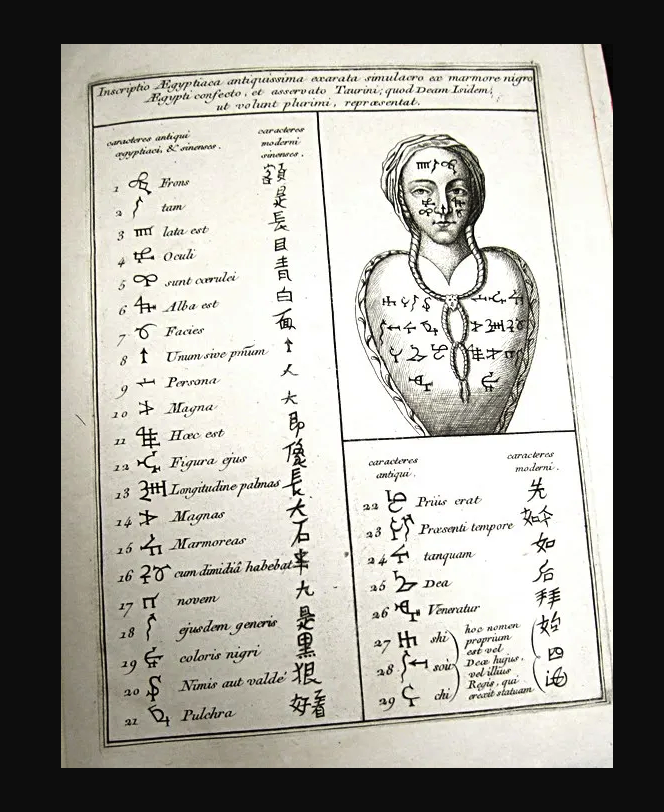 Inscriptio Ægyptiaca antiquissima exarata simulacro ex marmore nigro
Ægypti confecto, et asservato Taurini; quod Deam Isidem,
ut volunt plurimi, repræsentat.
caracteres antiqui
ægyptiaci, & sinenses.
caracteres
moderni
sinenses.
1 Frons 額
2 tam 是
3 lata est 長
4 Oculi 目
5 sunt cœrulei 青
6 Alba est 白
7 Facies 面
8 Unum sive pm̃um
9 Persona 人
10 Magna 大
11 Hœc est 即
12 Figura ejus 像
13 Longitudine palmas 長
14 Magnas 大
15 Marmoreas 石
16 cum dimidiâ habebat 半
17 novem 九
18 ejusdem generis 是
19 coloris nigri 黑
20 Nimis aut valdè 狠
21 Pulchra 好看
caracteres
antiqui.
caracteres
moderni.
22 Priùs erat 先
23 Præsenti tempore 如今
24 tanquam 如
25 Dea 后
26 Veneratur 拜
27 shi 始
28 sou 四
29 chi
hoc nomen
proprium
est vel
Deæ hujus,
vel illius
Regis, qui
erexit statuam